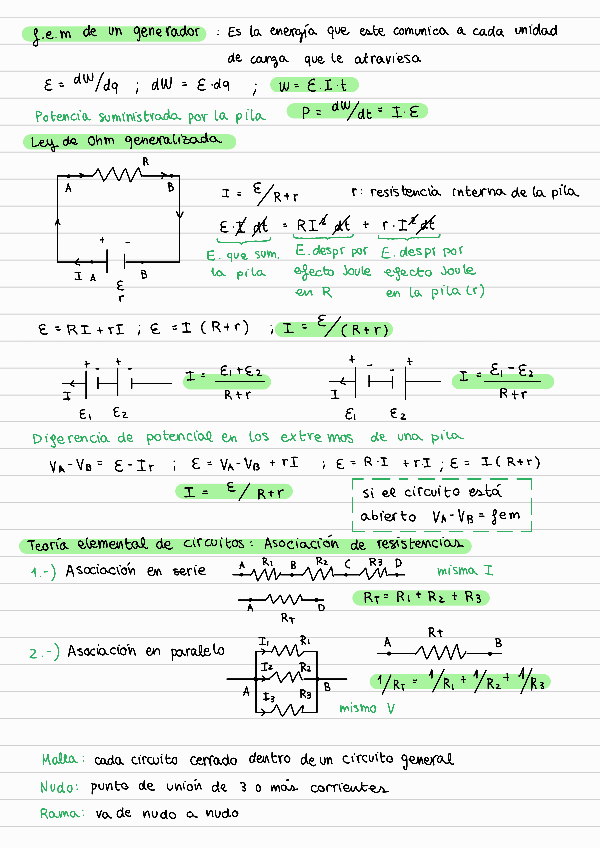 f.e.m de un generador : Es la energía que este comunica a cada unidad
de carga que le atraviesa
ε = dW/dq ; dW = ε·dq ; W = ε.I.t
Potencia suministrada por la pila P = dW/dt = I·ε
Ley de Ohm generalizada
R
A B
I = ε/R+r r: resistencia interna de la pila
+ -
I A B
ε
r
ε·I dt = RI² dt + r·I² dt
E. que sum. E. despr por E. despr por
la pila efecto Joule efecto Joule
en R en la pila (r)
ε = RI + rI ; ε = I (R+r) ; I = ε/(R+r)
+ - + I = ε₁+ε₂/R+r + - + I = ε₁-ε₂/R+r
I I
ε₁ ε₂ ε₁ ε₂
Diferencia de potencial en los extremos de una pila
VA-VB = ε-Ir ; ε = VA-VB + rI ; ε = R·I + r·I ; ε = I(R+r)
I = ε/R+r
si el circuito está
abierto VA-VB = fem
Teoría elemental de circuitos: Asociación de resistencias
1.-) Asociación en serie A R₁ B R₂ C R₃ D misma I
A D
RT
RT = R₁ + R₂ + R₃
2.-) Asociación en paralelo
I₁ R₁
I₂ R₂
A B
I₃ R₃
mismo V
Rt
A B
1/RT = 1/R₁ + 1/R₂ + 1/R₃
Malla: cada circuito cerrado dentro de un circuito general
Nudo: punto de unión de 3 o más corrientes
Rama: va de nudo a nudo